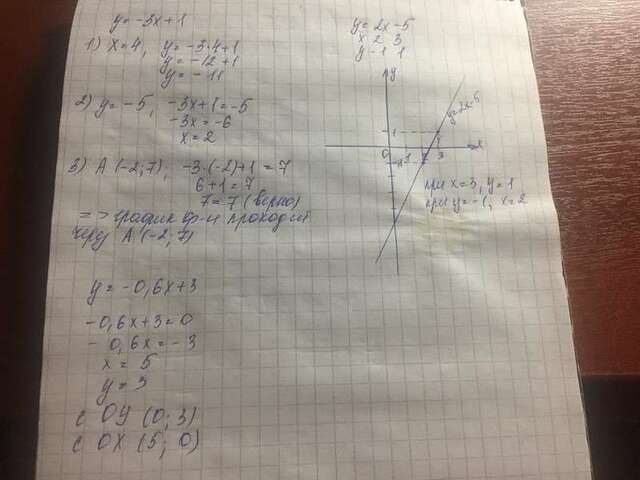 y=-3x+1
1) x=4, y=-3·4+1
y=-12+1
y=-11
2) y=-5, -3x+1=-5
-3x=-6
x=2
3) A(-2;7), -3·(-2)+1=7
6+1=7
7=7 (верно)
=> график ф-и проходит
через A(-2;7)
y=-0,6x+3
-0,6x+3=0
-0,6x=-3
x=5
y=3
с OY (0;3)
с OX (5;0)
y=2x-5
x 2 3
y -1 1
y
y=2x-5
1
x
0 1 2 3
-1
при x=3, y=1
при y=-1, x=2